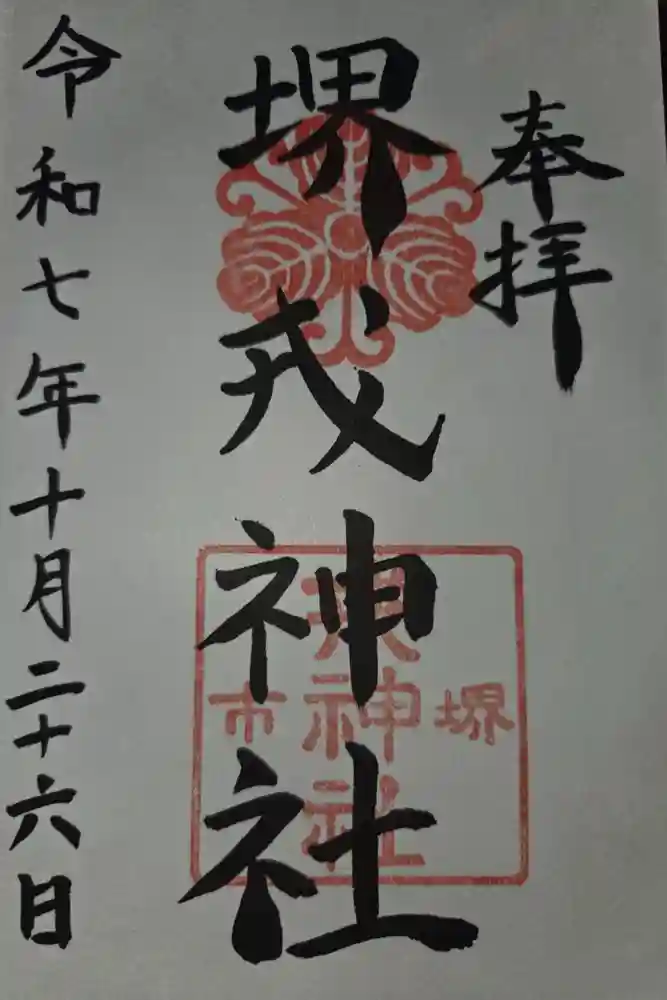 奉拝
堺戎神社
堺市
戎神社
令和七年十月二十六日